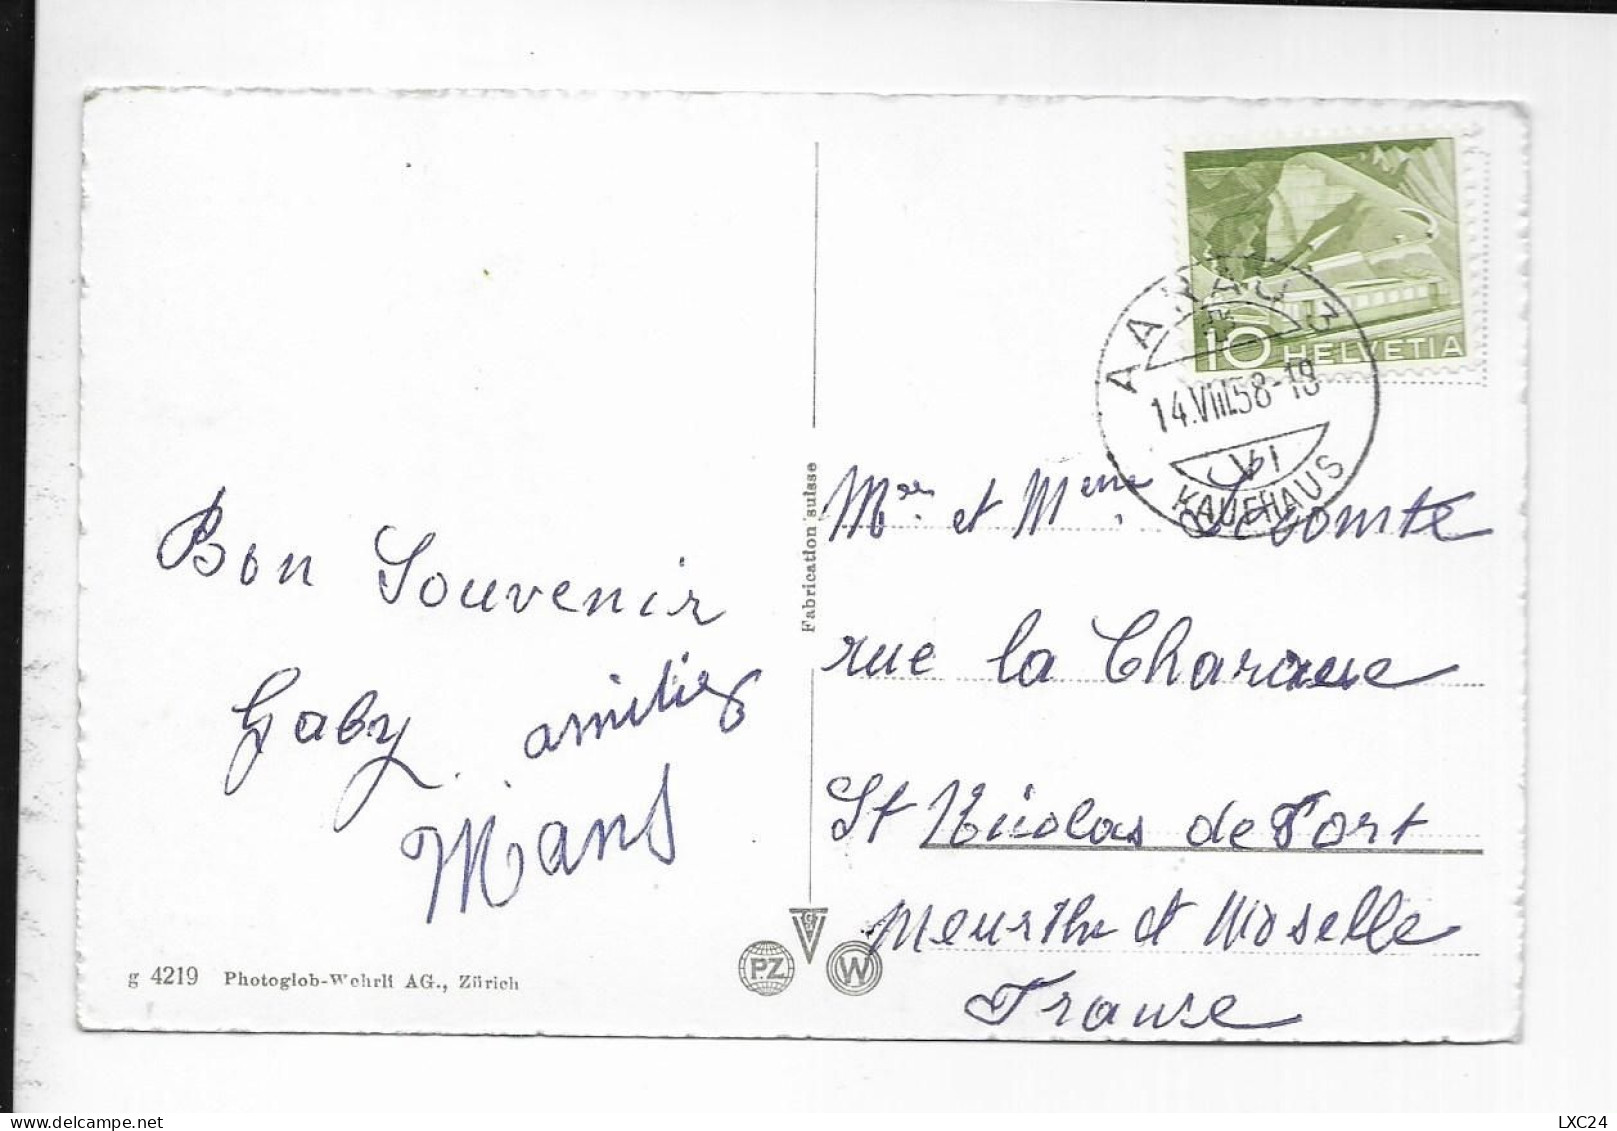 Bon Souvenir
Gaby amitiés
g 4219 Photoglob-Wehrli AG., Zürich
Fabrication suisse
PZ
W
10 HELVETIA
AARAU 3
14.VIII.58-19
VI
KAUFHAUS
Mr et Mme Lecomte
rue la
St Nicolas de Port
Meurthe et Moselle
France
LXC24